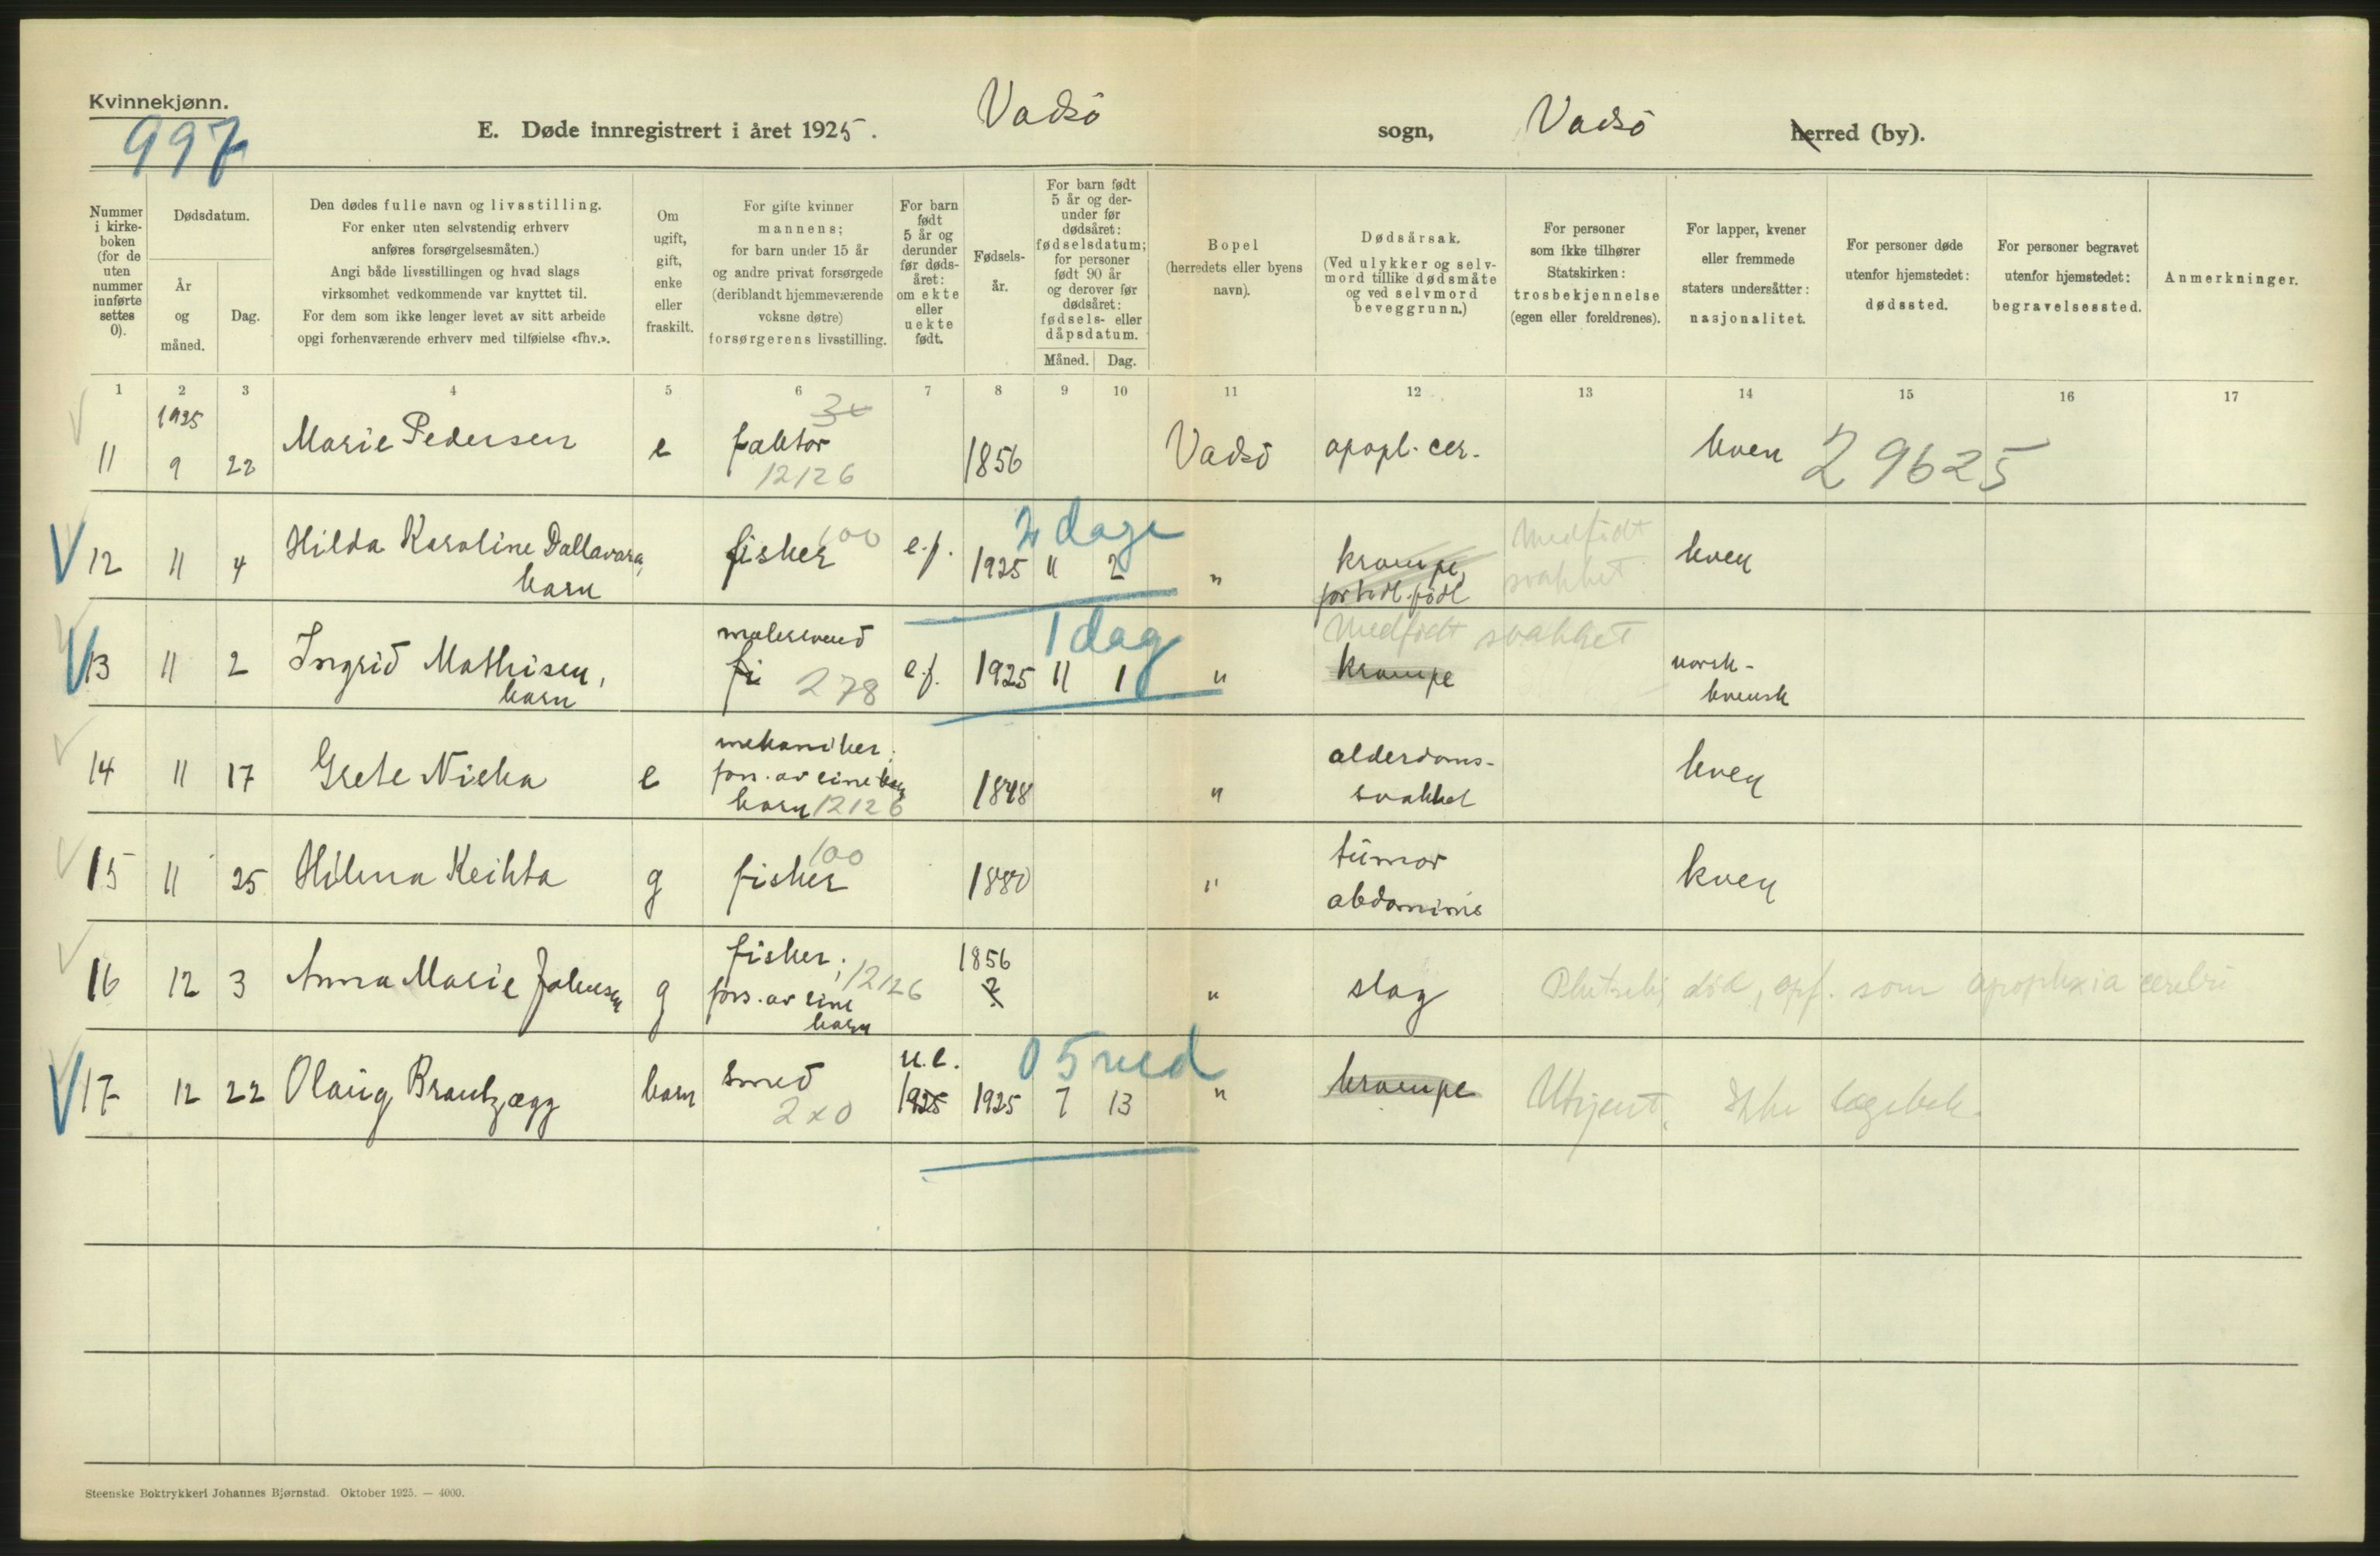 Kvinnekjønn.
997
E. Døde innregistrert i året 1925. Vadsö sogn, Vadsö herred (by).
Nummer i kirkeboken (for de uten nummer innførte settes 0).
Dødsdatum.
År og måned.
Dag.
Den dødes fulle navn og livsstilling.
For enker uten selvstendig erhverv
anføres forsørgelsesmåten.)
Angi både livsstillingen og hvad slags
virksomhet vedkommende var knyttet til.
For dem som ikke lenger levet av sitt arbeide
opgi forhenværende erhverv med tilføielse «fhv.».
Om ugift, gift, enke eller fraskilt.
For gifte kvinner
mannens;
for barn under 15 år
og andre privat forsørgede
(deriblandt hjemmeværende
voksne døtre)
forsørgerens livsstilling.
For barn født 5 år og derunder før dødsåret: om ekte eller uekte født.
Fødselsår.
For barn født 5 år og derunder før dødsåret: fødselsdatum; for personer født 90 år og derover før dødsåret: fødsels- eller dåpsdatum.
Måned. Dag.
Bopel
(herredets eller byens
navn).
Dødsårsak.
(Ved ulykker og selvmord tillike dødsmåte
og ved selvmord
beveggrunn.)
For personer
som ikke tilhører
Statskirken:
trosbekjennelse
(egen eller foreldrenes).
For lapper, kvener
eller fremmede
staters undersåtter:
nasjonalitet.
For personer døde
utenfor hjemstedet:
dødssted.
For personer begravet
utenfor hjemstedet:
begravelsessted.
Anmerkninger.
1 2 3 4 5 6 7 8 9 10 11 12 13 14 15 16 17
1925
11 9 22 Marie Pedersen e faktor 12126 1856 Vadsö apopl. cer. kven 29625
2 dage
12 11 4 Hilda Karoline Dallavara, fisker 100 e.f. 1925 11 2 " krampe, Medfødt kven
barn fortidl. født svakhet
1 dag
malersvend Medfødt svakhet
13 11 2 Ingrid Mathisen, fi 278 e.f. 1925 11 1 " krampe norsk-
barn kvensk
mekaniker;
14 11 17 Grete Niska e fors. av sine 1848 " alderdoms- kven
barn 12126 svakhet
15 11 25 Hilma Keihta g fisker 100 1880 " tumor kven
abdominis
fisker; 12126 1856
16 12 3 Anna Marie Johnsen g fors. av sine ? " slag Plutselig død, opf. som apoplexia cerebri
barn
u.e. 05 md
17 12 22 Olaug Brantzægg barn smed 1925 1925 7 13 " krampe Utjent. Ikke lægebeh.
2x0
Steenske Boktrykkeri Johannes Bjørnstad. Oktober 1925. — 4000.